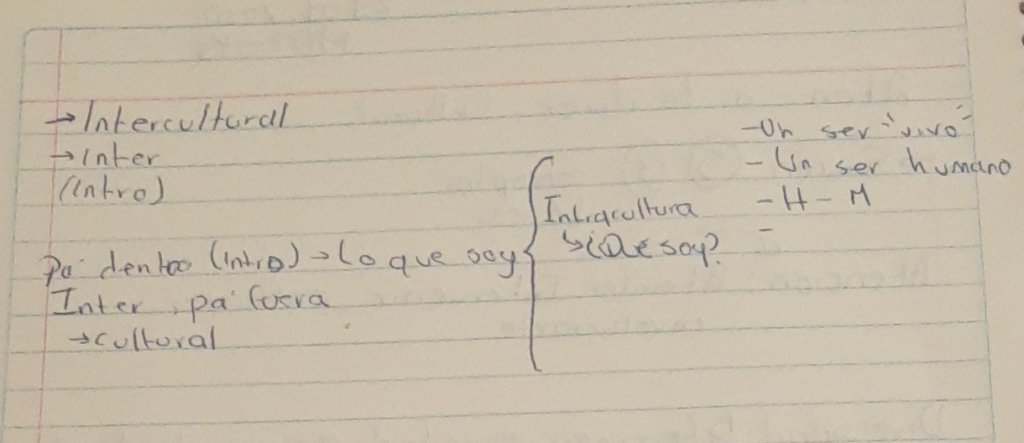 →Intercultural
→Inter
(Intro)
Pa' dentro (Intro) → Lo que soy
Inter, pa' fuera
→cultural
Intracultura
↳¿Qué soy?
-Un ser "vivo"
- Un ser humano
- H - M
-